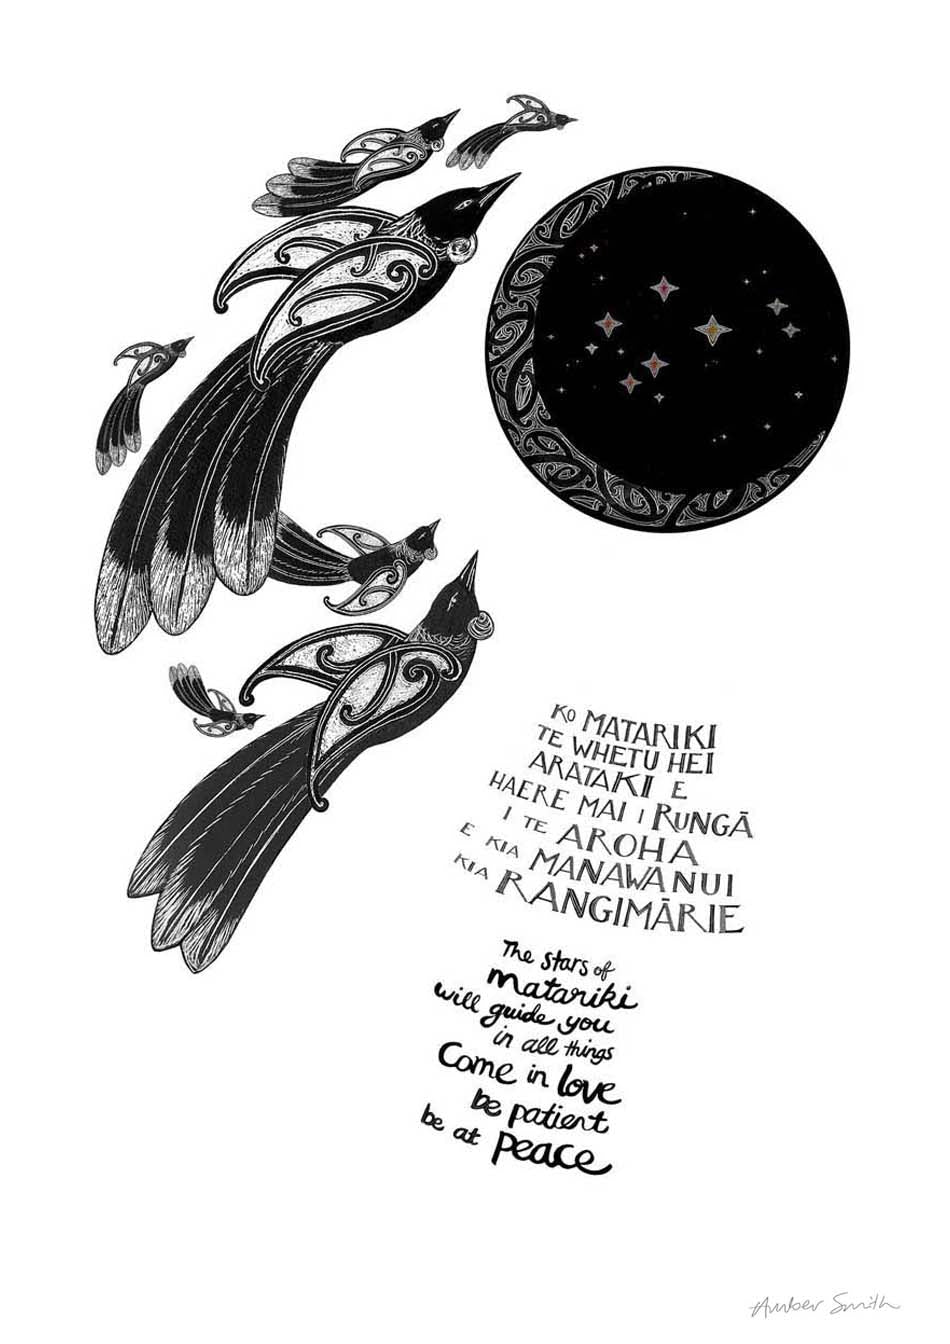 KO MATARIKI
TE WHETU HEI
ARATAKI E
HAERE MAI I RUNGĀ
I TE AROHA
E KIA MANAWANUI
KIA RANGIMĀRIE
The stars of
matariki
will guide you
in all things
Come in love
be patient
be at peace
Amber Smith